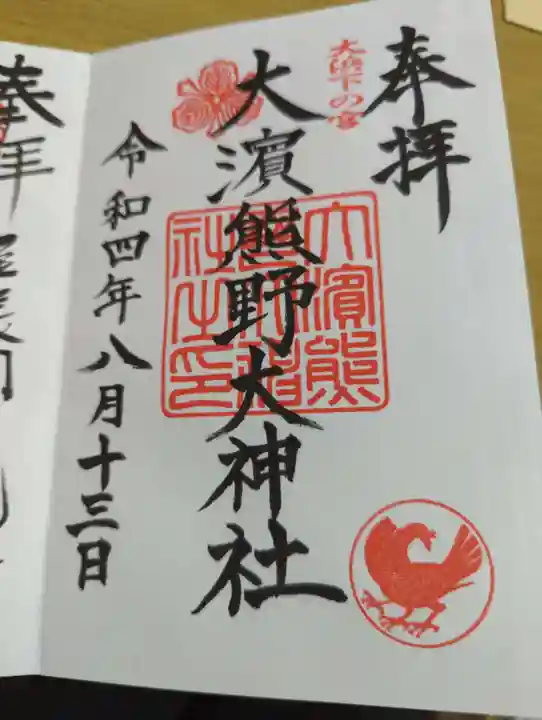 奉拝
大浜下の宮
大濱熊野大神社
大濱熊
社之印
令和四年八月十三日
奉拝